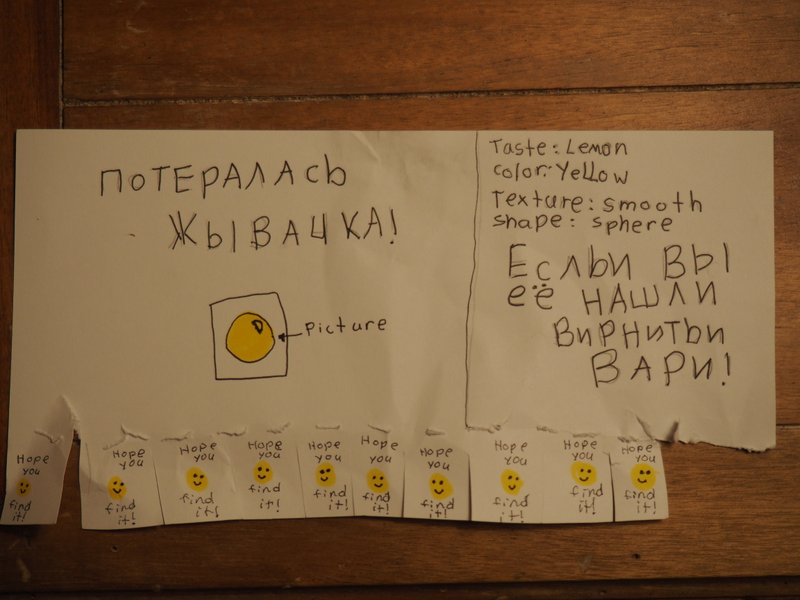 ПОТЕРАЛАСЬ
ЖЫВАЧКА!
Picture
Taste: Lemon
color: Yellow
Texture: smooth
shape: sphere
ЕСЛЬИ ВЫ
её НАШЛИ
ВИРНИТЬИ
ВАРИ!
Hope
you
find
it!
Hope
you
find
it!
Hope
you
find
it!
Hope
you
find
it!
Hope
you
find
it!
Hope
you
find
it!
Hope
you
find
it!
Hope
you
find
it!
Hope
you
find
it!
Hope
you
find
it!